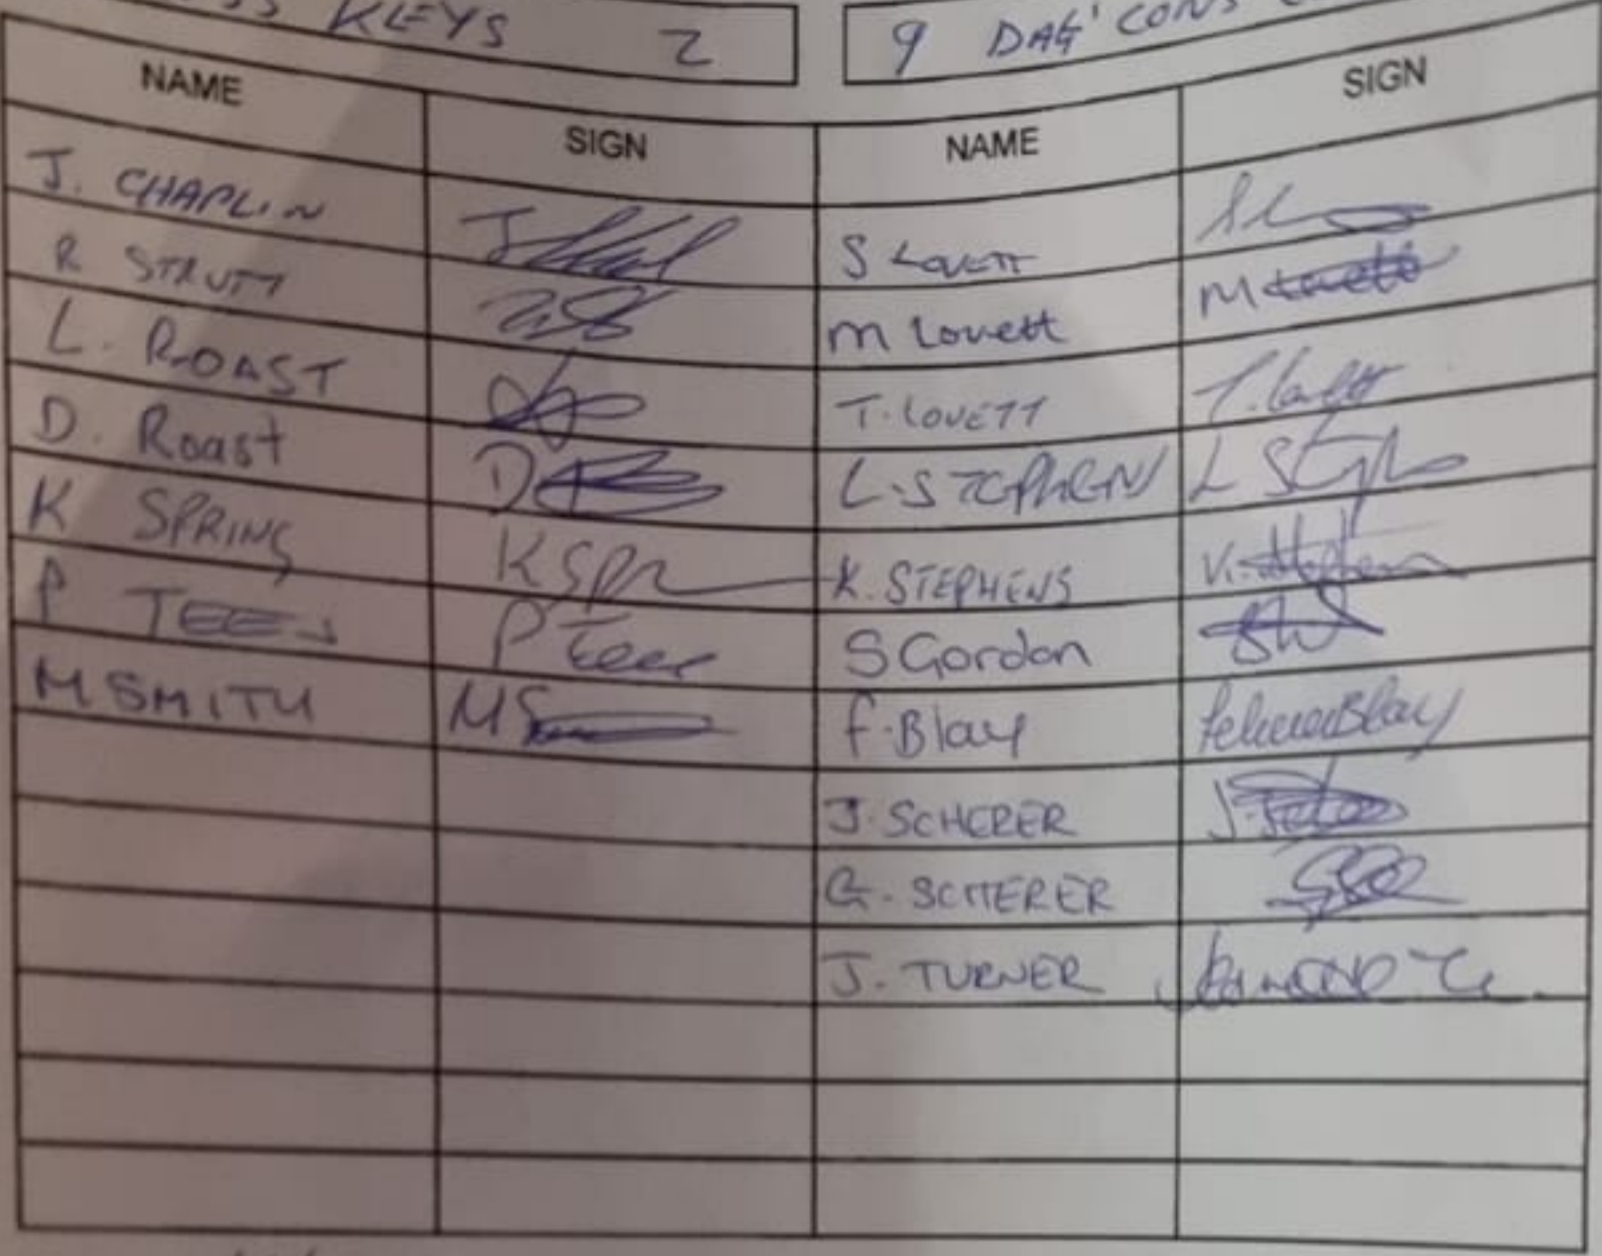 KEYS 2
9 DAG' CONS
NAME SIGN NAME SIGN
J. CHAPLIN
S LOVETT
R STRUTT
M Lovett M Lovett
L. ROAST
T. LOVETT T. Lovett
D. Roast D
L. STEPHEN L Steph
K SPRING K Spr
K. STEPHENS K. Stephens
P TEES P Tees
S Gordon
M SMITH M S
F. Blay Blay
J. SCHERER J.
G. SCHERER
J. TURNER